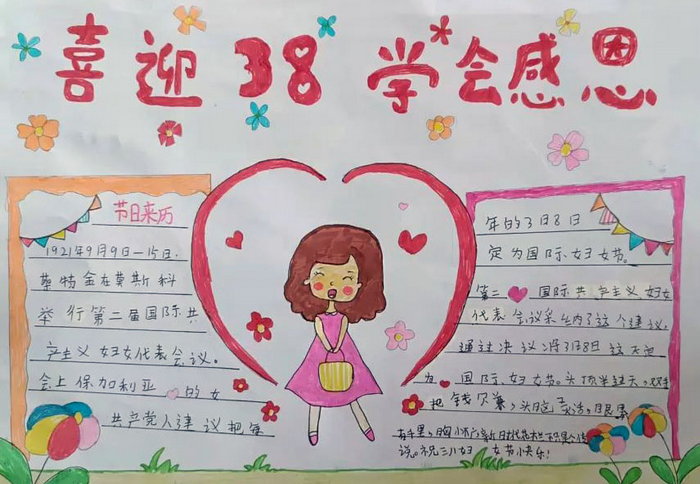 喜迎38 学会感恩
节日来历
1921年9月9日—15日.
莫斯科
举行第二届国际共
产主义 妇女代表会议。
会上 保加利亚 的 女
共产党人建 议 把每
年的3月8日
定为国际妇女节。
第二 国际共产主义 妇女
代表会议采纳了这个建议,
通过决议将3月8日 这天
为 国际妇女节。头顶半边天,双手
把 钱 ,头脑灵活,
有千里,胸怀
说。祝三八妇女节快乐!